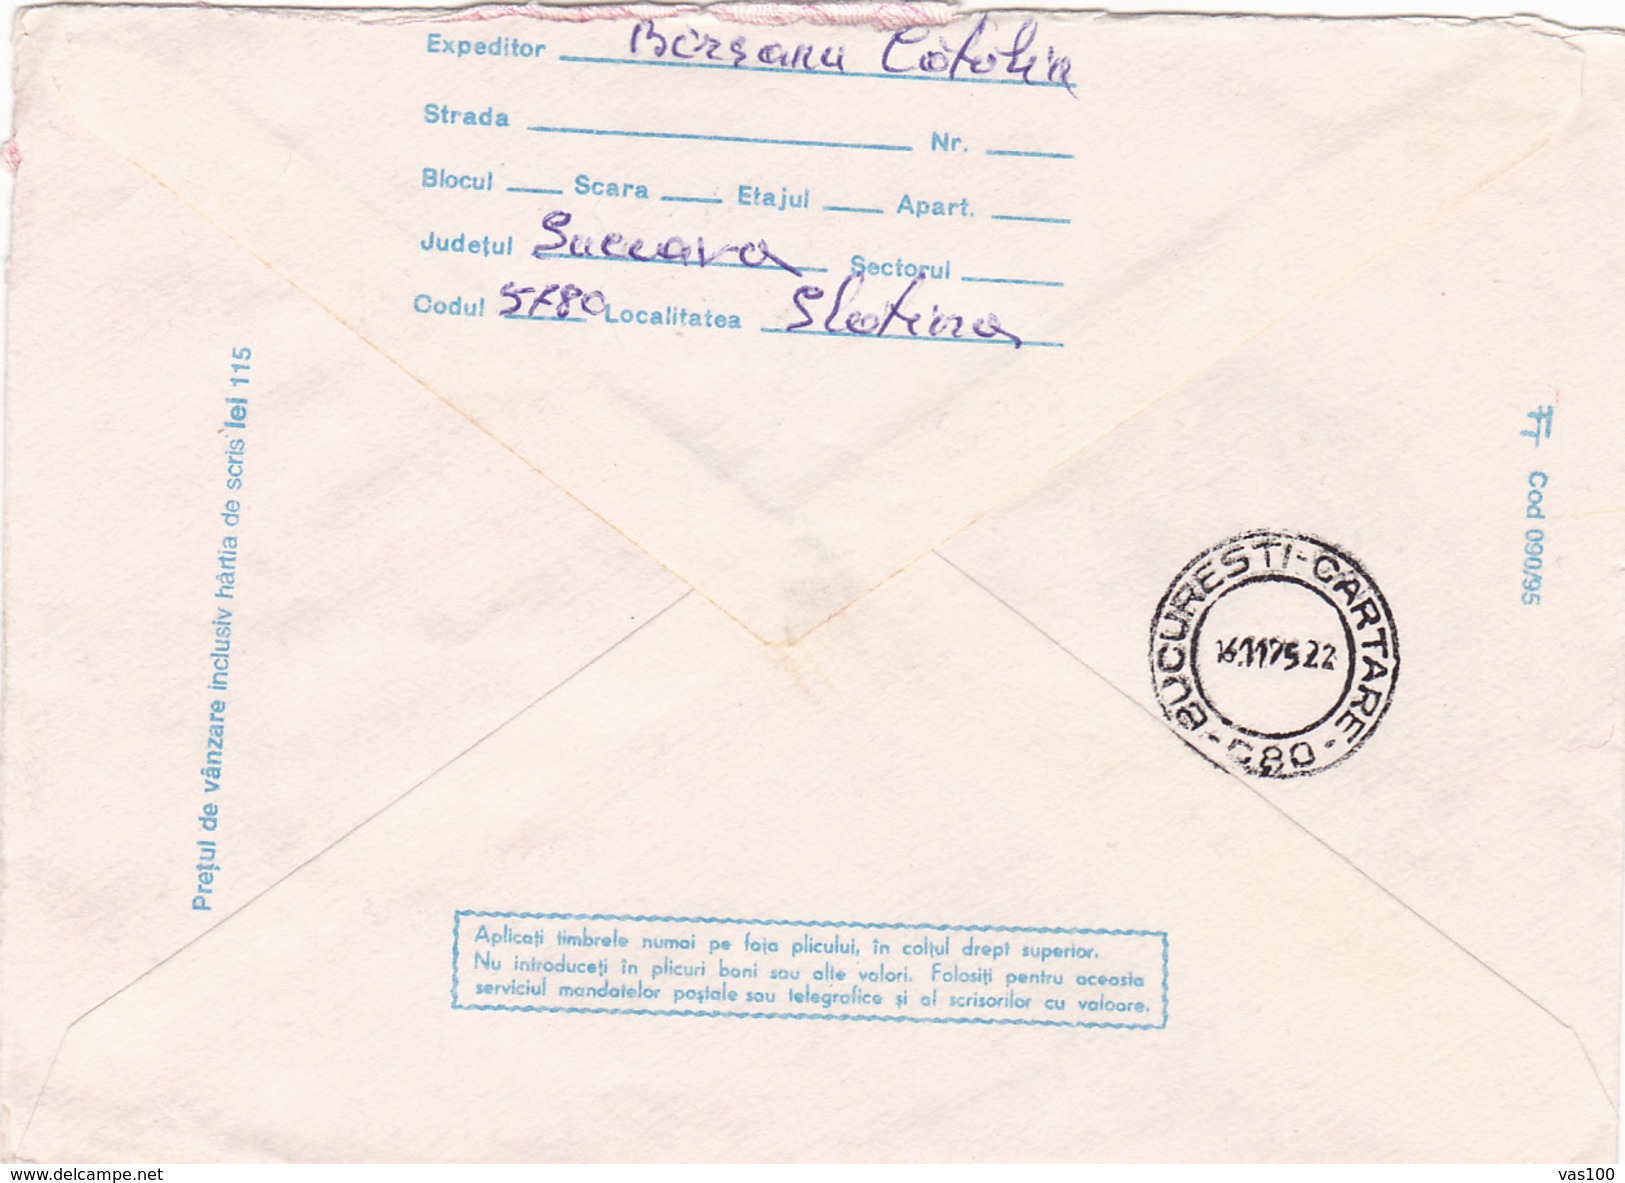 Expeditor Bôrsanu Cătălin
Strada Nr.
Blocul Scara Etajul Apart.
Județul Suceava Sectorul
Codul 5780 Localitatea Slatina
Prețul de vânzare inclusiv hârtia de scris lei 115
Cod 090/95
BUCURESTI-CARTARE
16.11.95.22
C80
Aplicați timbrele numai pe fața plicului, în colțul drept superior.
Nu introduceți în plicuri bani sau alte valori. Folosiți pentru aceasta
serviciul mandatelor poștale sau telegrafice și al scrisorilor cu valoare.
www.delcampe.net
vas100